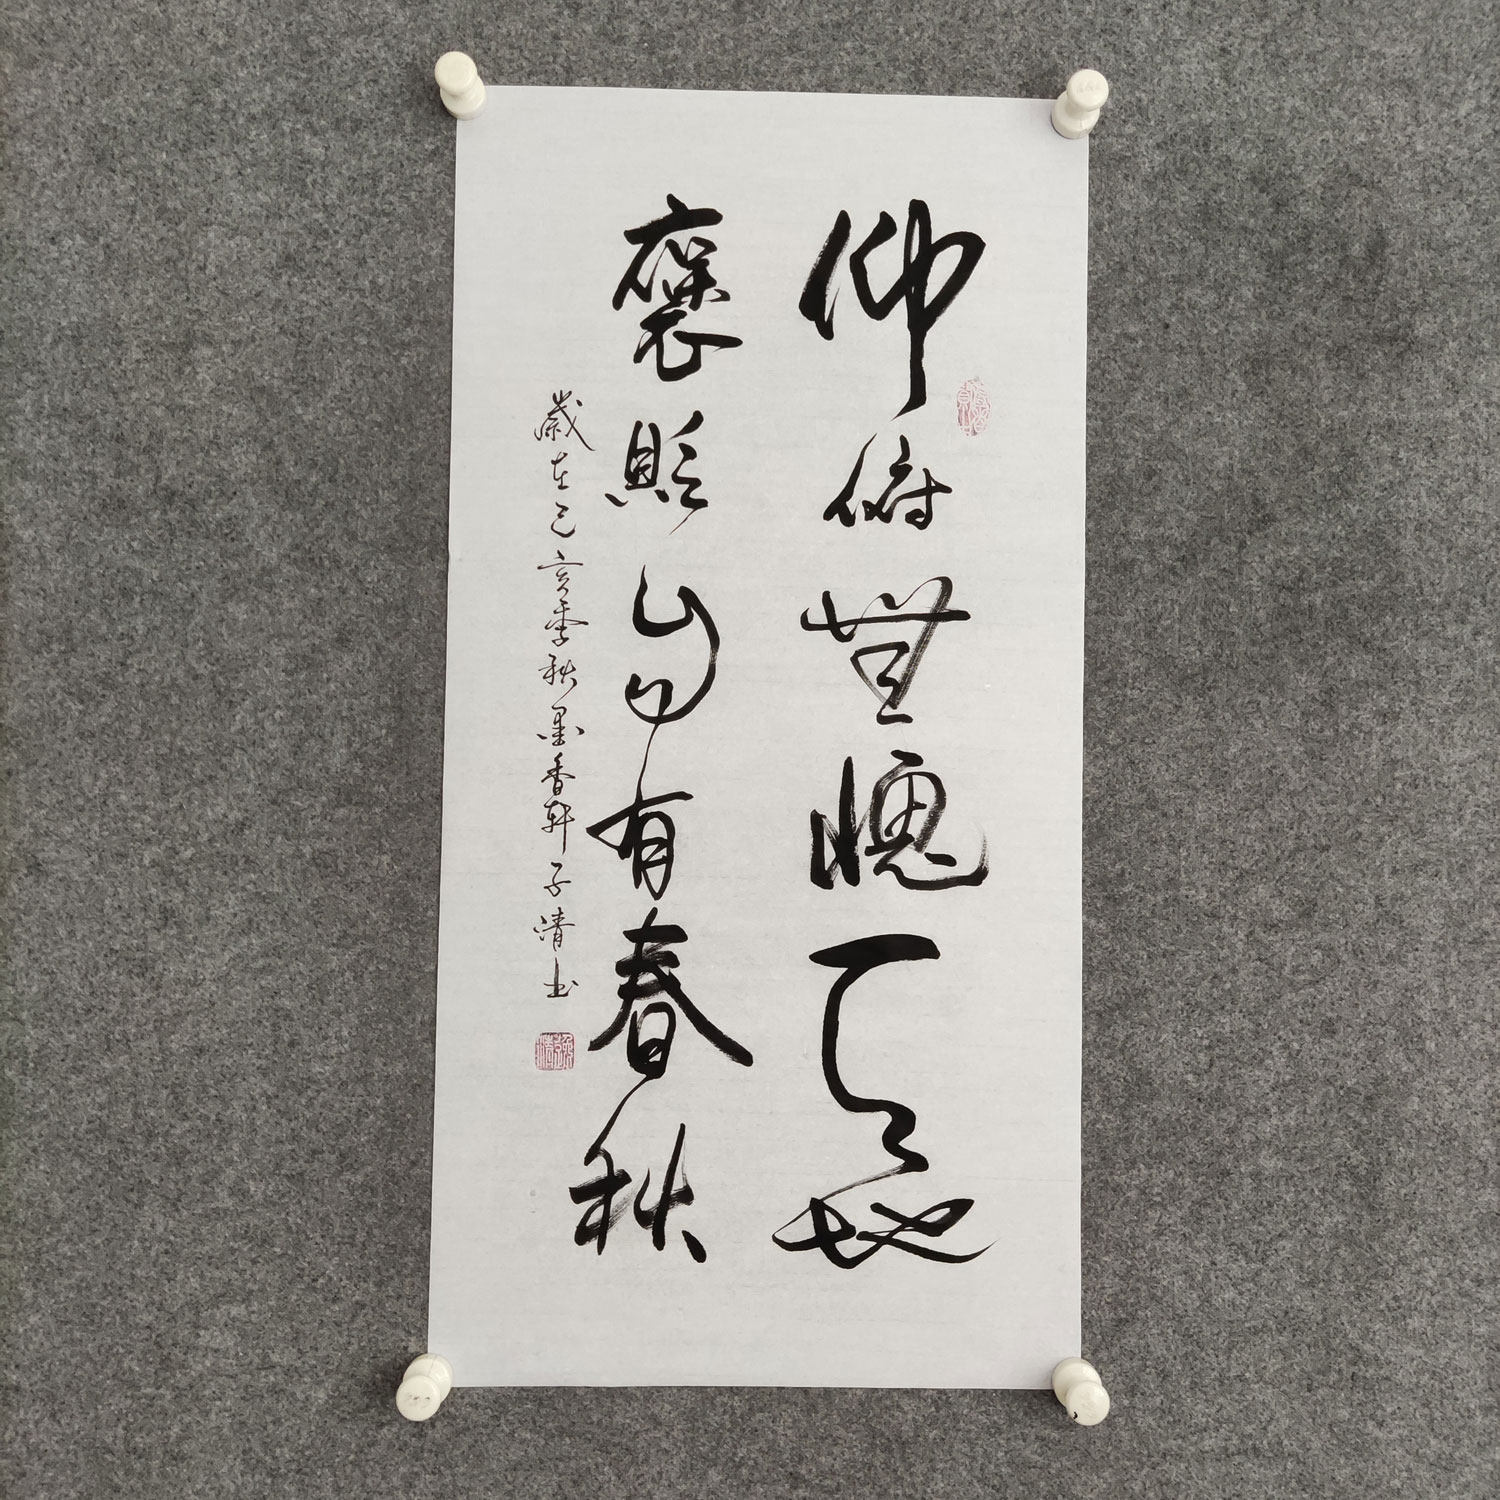 仰俯無愧天地
褒貶自有春秋
歲在己亥季秋墨香軒子清书